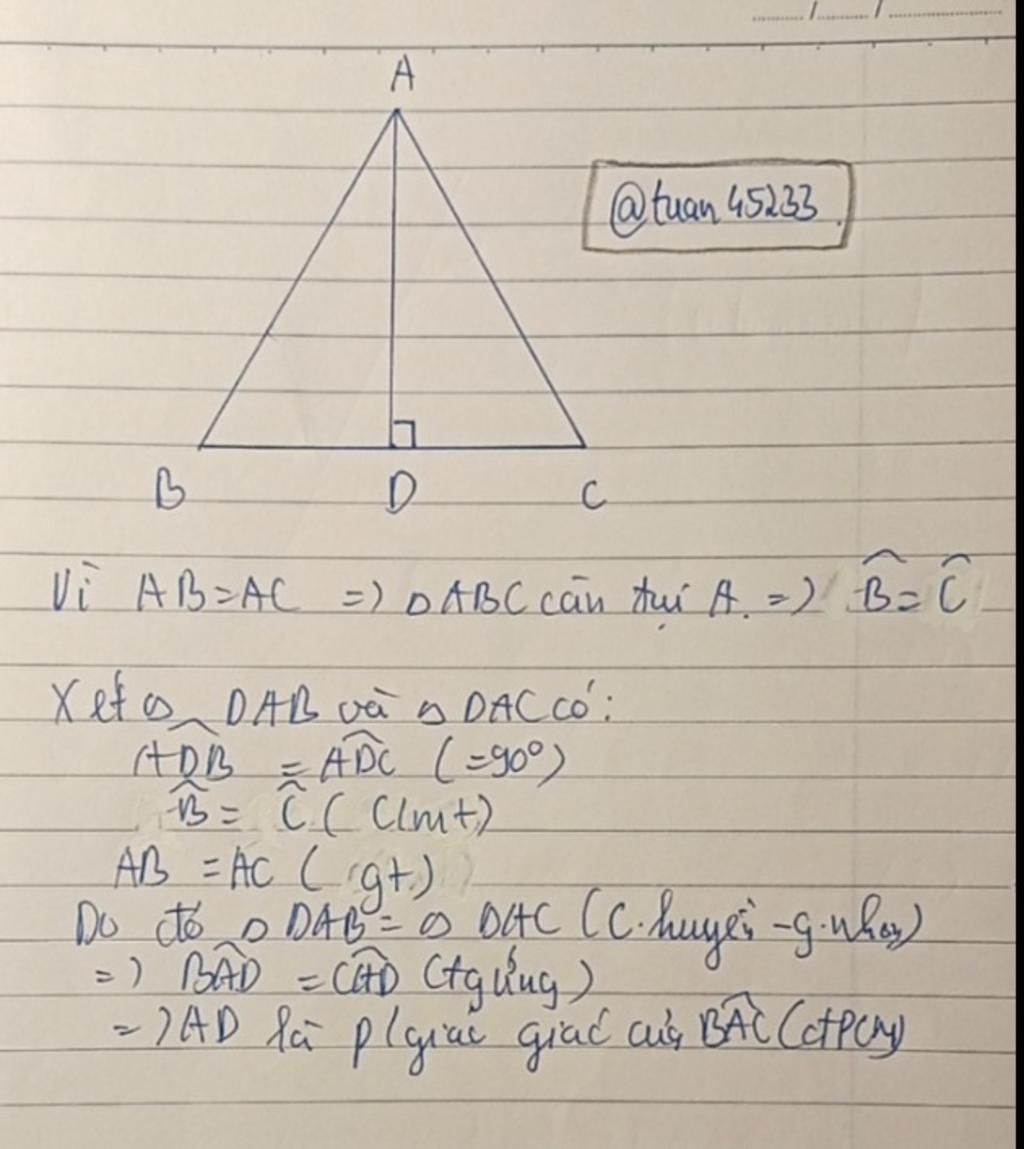 A
@tuan45233
B D C
Vì AB=AC => ΔABC cân tại A. => B̂ = Ĉ
Xét Δ DAB và Δ DAC có:
ADB̂ = ADĈ (=90°)
B̂ = Ĉ (cmt)
AB = AC (gt)
Do đó Δ DAB = Δ DAC (C.huyền-g.nhọn)
=> BAD̂ = CAD̂ (tg ứng)
=> AD là p/giác giác của BAĈ (đPCM)